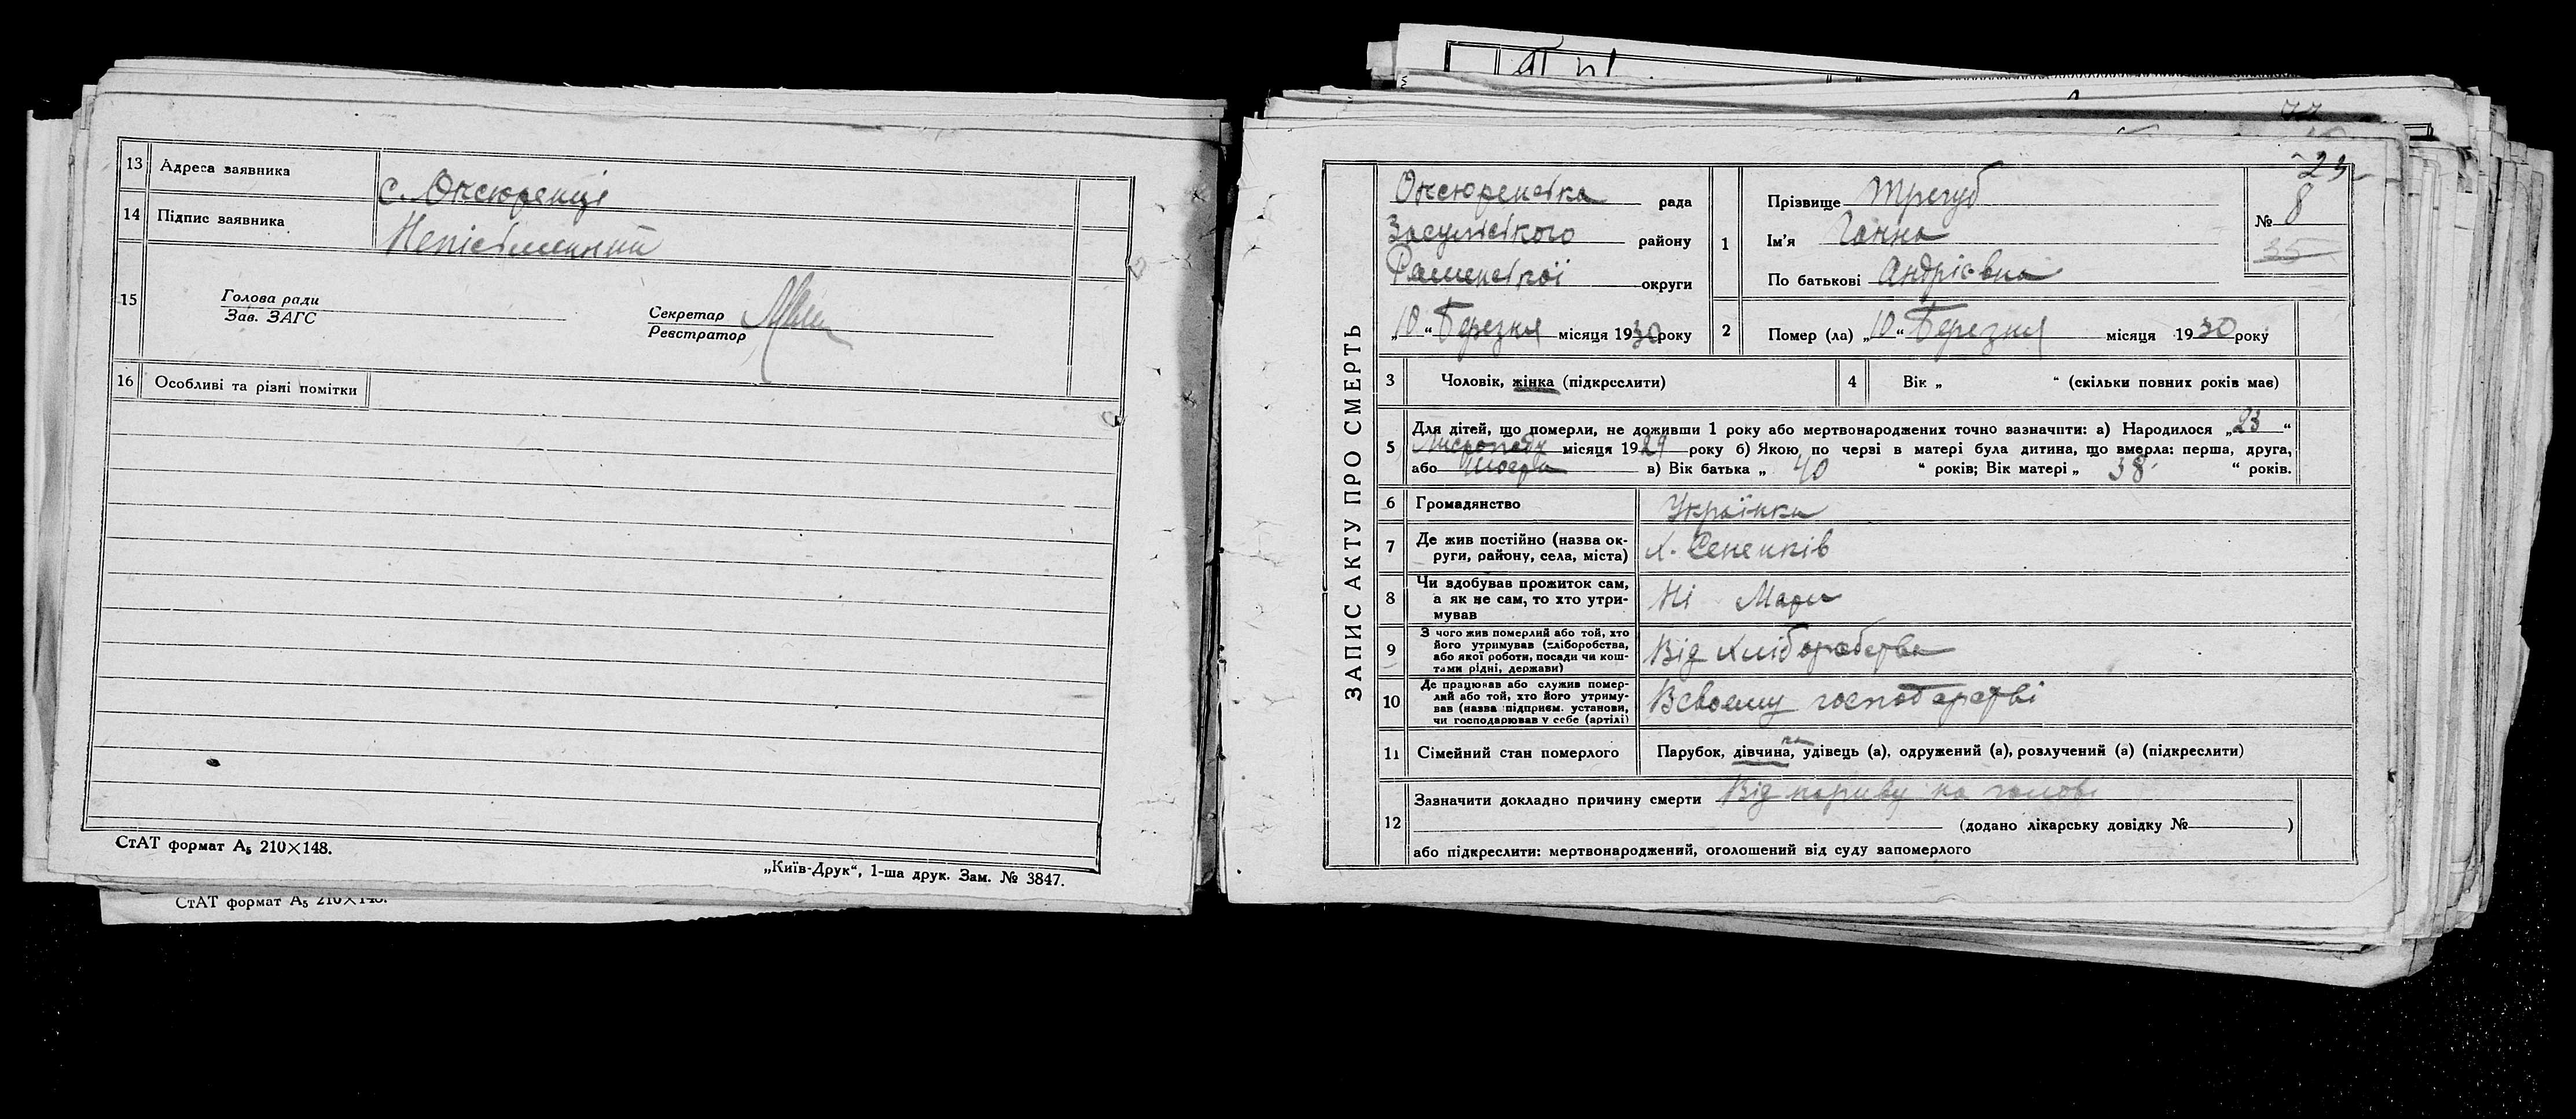 13 Адреса заявника с. Оксюренці
14 Підпис заявника Неписьменний
15 Голова ради
Зав. ЗАГС
Секретар
Реєстратор
16 Особливі та різні помітки
СтАТ формат А₅ 210×148.
„Київ-Друк“, 1-ша друк. Зам. № 3847.
СтАТ формат А₅ 210×148.
ЗАПИС АКТУ ПРО СМЕРТЬ
23
рада
Засульського району
Роменської округи
„10“ Березня місяця 1930 року
1 Прізвище Трегуб
Ім'я Ганна
По батькові Андрієвна
№ 8
35
2 Помер (ла) „10“ Березня місяця 1930 року
3 Чоловік, жінка (підкреслити)
4 Вік „ “ (скільки повних років має)
5 Для дітей, що померли, не доживши 1 року або мертвонароджених точно вазначити: а) Народилося „23“
Листопаду місяця 1929 року б) Якою по черзі в матері була дитина, що вмерла: перша, друга,
або шоста в) Вік батька „ 40 “ років; Вік матері „ 38 “ років.
6 Громадянство Українка
7 Де жив постійно (назва ок-
руги, району, села, міста) х.
8 Чи здобував прожиток сам,
а як не сам, то хто утри-
мував Ні
9 З чого жив померлий або той, хто
його утримував (хліборобства,
або якої роботи, посади чи кош-
тами рідні, держави) Від хлібороборства
10 Де працював або служив помер-
лий або той, хто його утриму-
вав (назва підприєм. установи,
чи господарював у себе (артілі) В своєму господарстві
11 Сімейний стан померлого Парубок, дівчина, удівець (а), одружений (а), розлучений (а) (підкреслити)
12 Зазначити докладно причину смерти Від нариву на голові
(додано лікарську довідку № )
або підкреслити: мертвонароджений, оголошений від суду запомерлого